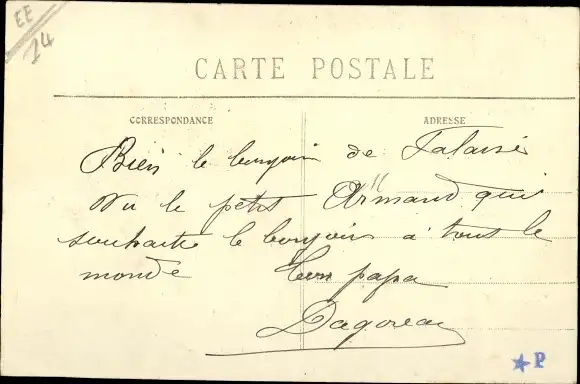 EE
24
CARTE POSTALE
CORRESPONDANCE
ADRESSE
Bien le bonjour de Falaise
Vu le petit Armand qui
souhaite le bonjour à tous le
monde Ton papa
Dagoreau
★P